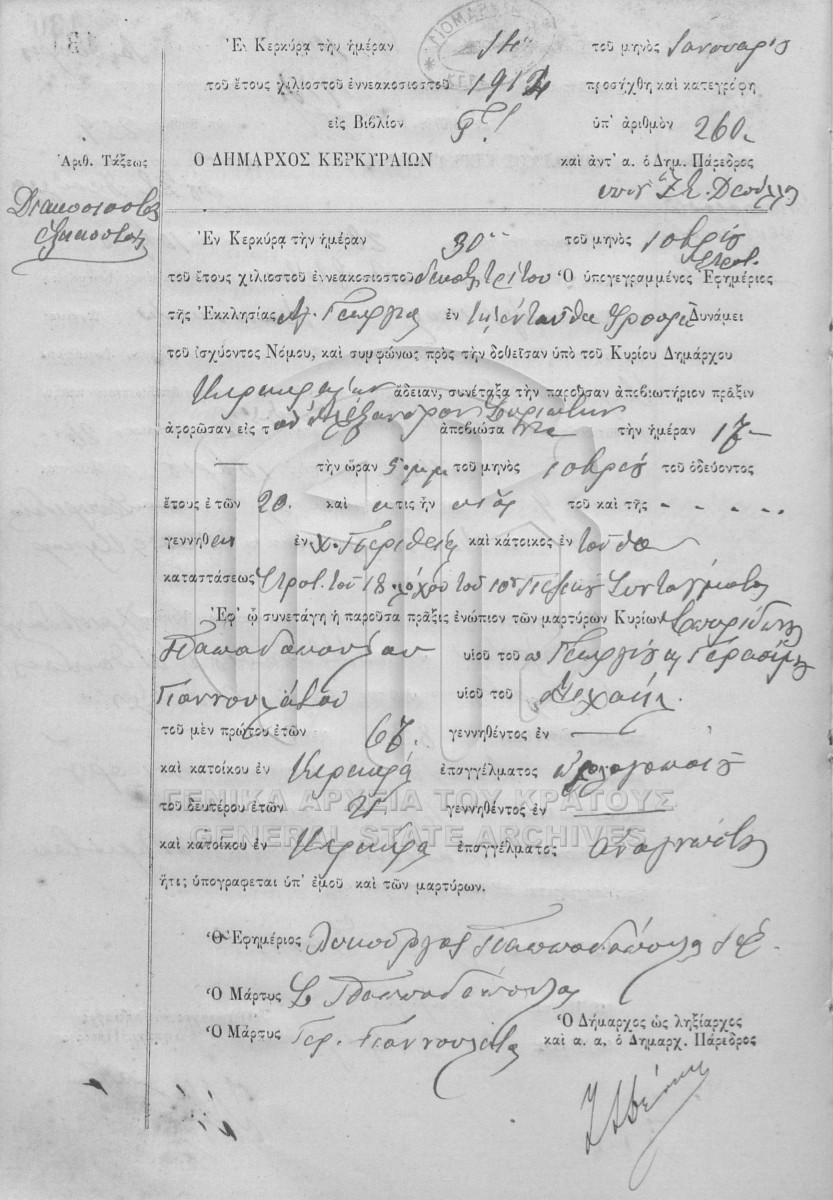 Ἐν Κερκύρᾳ τὴν ἡμέραν 14 τοῦ μηνὸς Ἰανουαρίου
τοῦ ἔτους χιλιοστοῦ ἐννεακοσιοστοῦ 1914 προσήχθη καὶ κατεγράφη
εἰς Βιβλίον ὑπ' ἀριθμὸν 260
Ἀριθ. Τάξεως
Ο ΔΗΜΑΡΧΟΣ ΚΕΡΚΥΡΑΙΩΝ καὶ ἀντ' α. ὁ Δημ. Πάρεδρος
Διακοσιοστὸς
ἑξηκοστὸς
Ἐν Κερκύρᾳ τὴν ἡμέραν 30 τοῦ μηνὸς 10βρίου
τοῦ ἔτους χιλιοστοῦ ἐννεακοσιοστοῦ δεκάτου τρίτου Ὁ ὑπογεγραμμένος Ἐφημέριος
τῆς Ἐκκλησίας Ἁγ. Γεωργίου ἐν τῷ ἐνταῦθα Φρουρίῳ Δυνάμει
τοῦ ἰσχύοντος Νόμου, καὶ συμφώνως πρὸς τὴν δοθεῖσαν ὑπὸ τοῦ Κυρίου Δημάρχου
Κερκυραίων ἄδειαν, συνέταξα τὴν παροῦσαν ἀποβιωτήριον πρᾶξιν
ἀφορῶσαν εἰς τὸν Ἀλέξανδρον ἀποβιώσαντα τὴν ἡμέραν 17
τὴν ὥραν 5 μ.μ. τοῦ μηνὸς 10βρίου τοῦ ὁδεύοντος
ἔτους ἐτῶν 20 καὶ τις ἦν υἱὸς τοῦ καὶ τῆς - - - - -
γεννηθεὶς ἐν χ. Περίθεια καὶ κάτοικος ἐν
καταστάσεως Στρατ. τοῦ 18 λόχου τοῦ 10 Πεζικοῦ Συντάγματος
Ἐφ' ᾧ συνετάγη ἡ παροῦσα πρᾶξις ἐνώπιον τῶν μαρτύρων Κυρίων Σπυρίδωνος
Παπαδοπούλου υἱοῦ τοῦ Γεωργίου Γερασίμου
Γιαννουλάτου υἱοῦ τοῦ Μιχαήλ.
τοῦ μὲν πρώτου ἐτῶν 67. γεννηθέντος ἐν
καὶ κατοίκου ἐν Κερκύρᾳ ἐπαγγέλματος ὡρολογοποιοῦ
ΓΕΝΙΚΑ ΑΡΧΕΙΑ ΤΟΥ ΚΡΑΤΟΥΣ
τοῦ δευτέρου ἐτῶν 21 γεννηθέντος ἐν
GENERAL STATE ARCHIVES
καὶ κατοίκου ἐν Κερκύρᾳ ἐπαγγέλματος ἀναγνώστου
ἥτις ὑπογράφεται ὑπ' ἐμοῦ καὶ τῶν μαρτύρων.
Ὁ Ἐφημέριος Λυκοῦργος Παππαδόπουλος Ἱερ.
Ὁ Μάρτυς Σ Παπαδόπουλος
Ὁ Μάρτυς Γερ. Γιαννουλάτος
Ὁ Δήμαρχος ὡς ληξίαρχος
καὶ α. α. ὁ Δημαρχ. Πάρεδρος